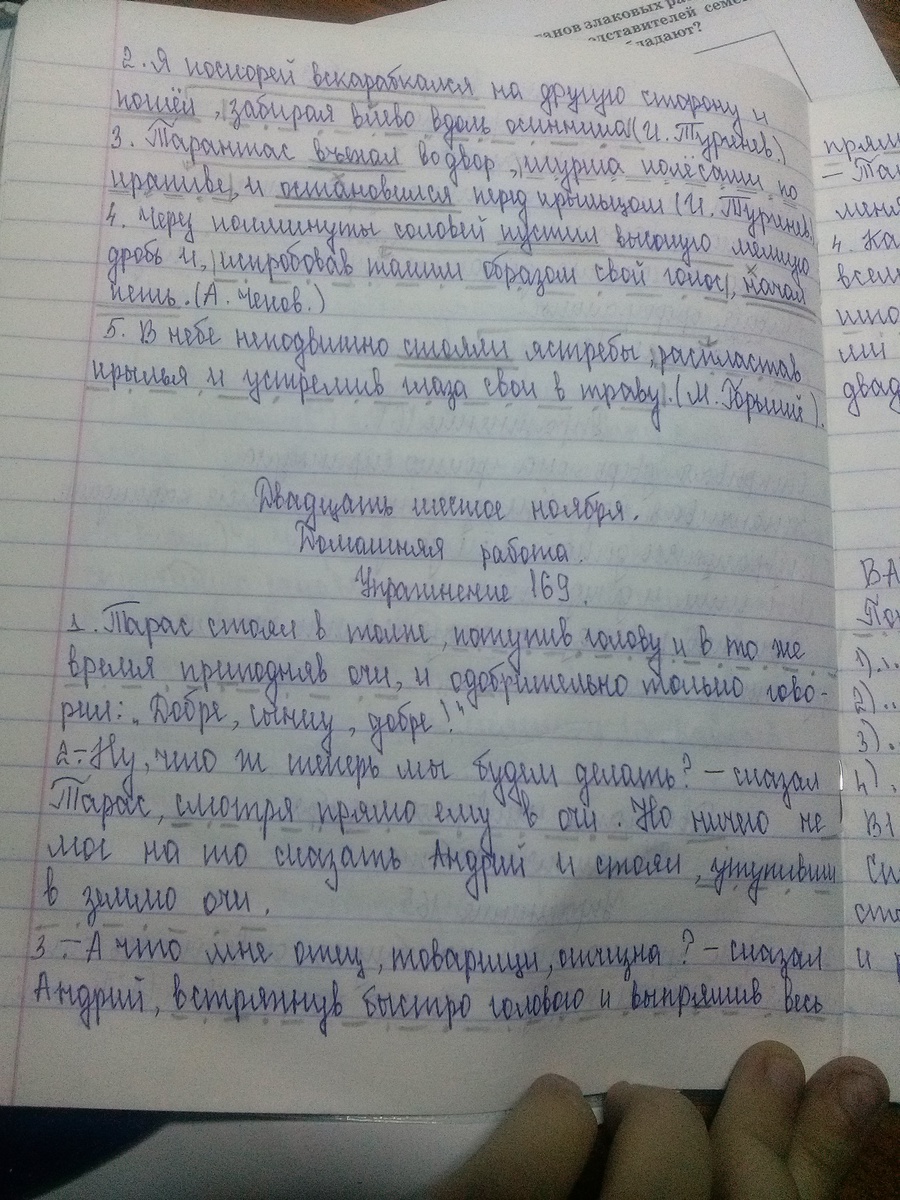 танов злаковых ра
едставителей сем
бладают?
2. Я поскорей вскарабкался на другую сторону и
пошёл, забирая влево вдоль осинника (И. Тургенев.)
3. Тарантас въехал во двор, шурша колёсами по
крапиве, и остановился перед крыльцом (И. Тургенев.
4. Через полминуты соловей пустил высокую мелкую
дробь и, испробовав таким образом свой голос, начал
петь. (А. Чехов.)
5. В небе неподвижно стояли ястребы, распластав
крылья и устремив глаза свои в траву. (М. Горький).
Двадцать шестое ноября.
Домашняя работа.
Упражнение 169.
1. Тарас стоял в толпе, потупив голову и в то же
время приподняв очи, и одобрительно только гово-
рил: „Добре, сынку, добре!"
2. – Ну, что ж теперь мы будем делать? – сказал
Тарас, смотря прямо ему в очи. Но ничего не
мог на то сказать Андрий и стоял, утупивши
в землю очи.
3. – А что мне отец, товарищи, отчизна? – сказал
Андрий, встряхнув быстро головою и выпрямив весь
прям
– Та
меня
4. Ка
всем
што
ли
двад
ВА
По
1)..
2)..
3).
4).
В1
Сп
сто
и